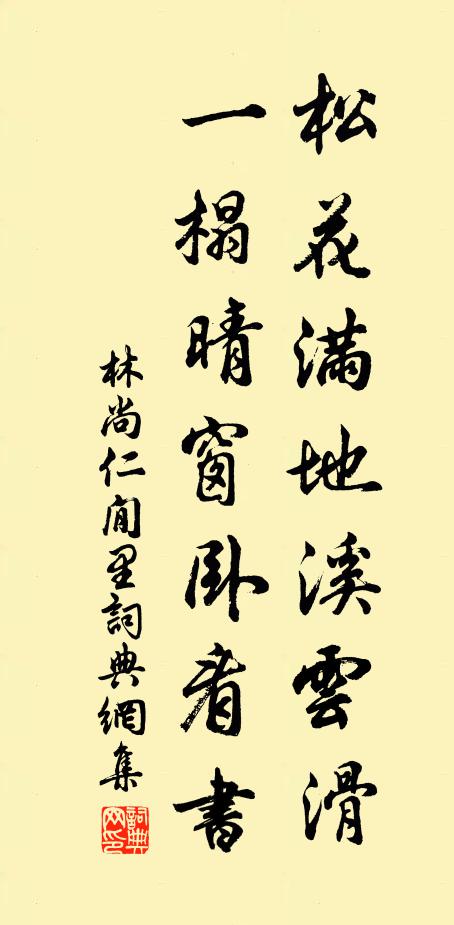 松花滿地溪雲滑
一榻晴窗臥看書
林尚仁閒里詞典網集
詞典網印